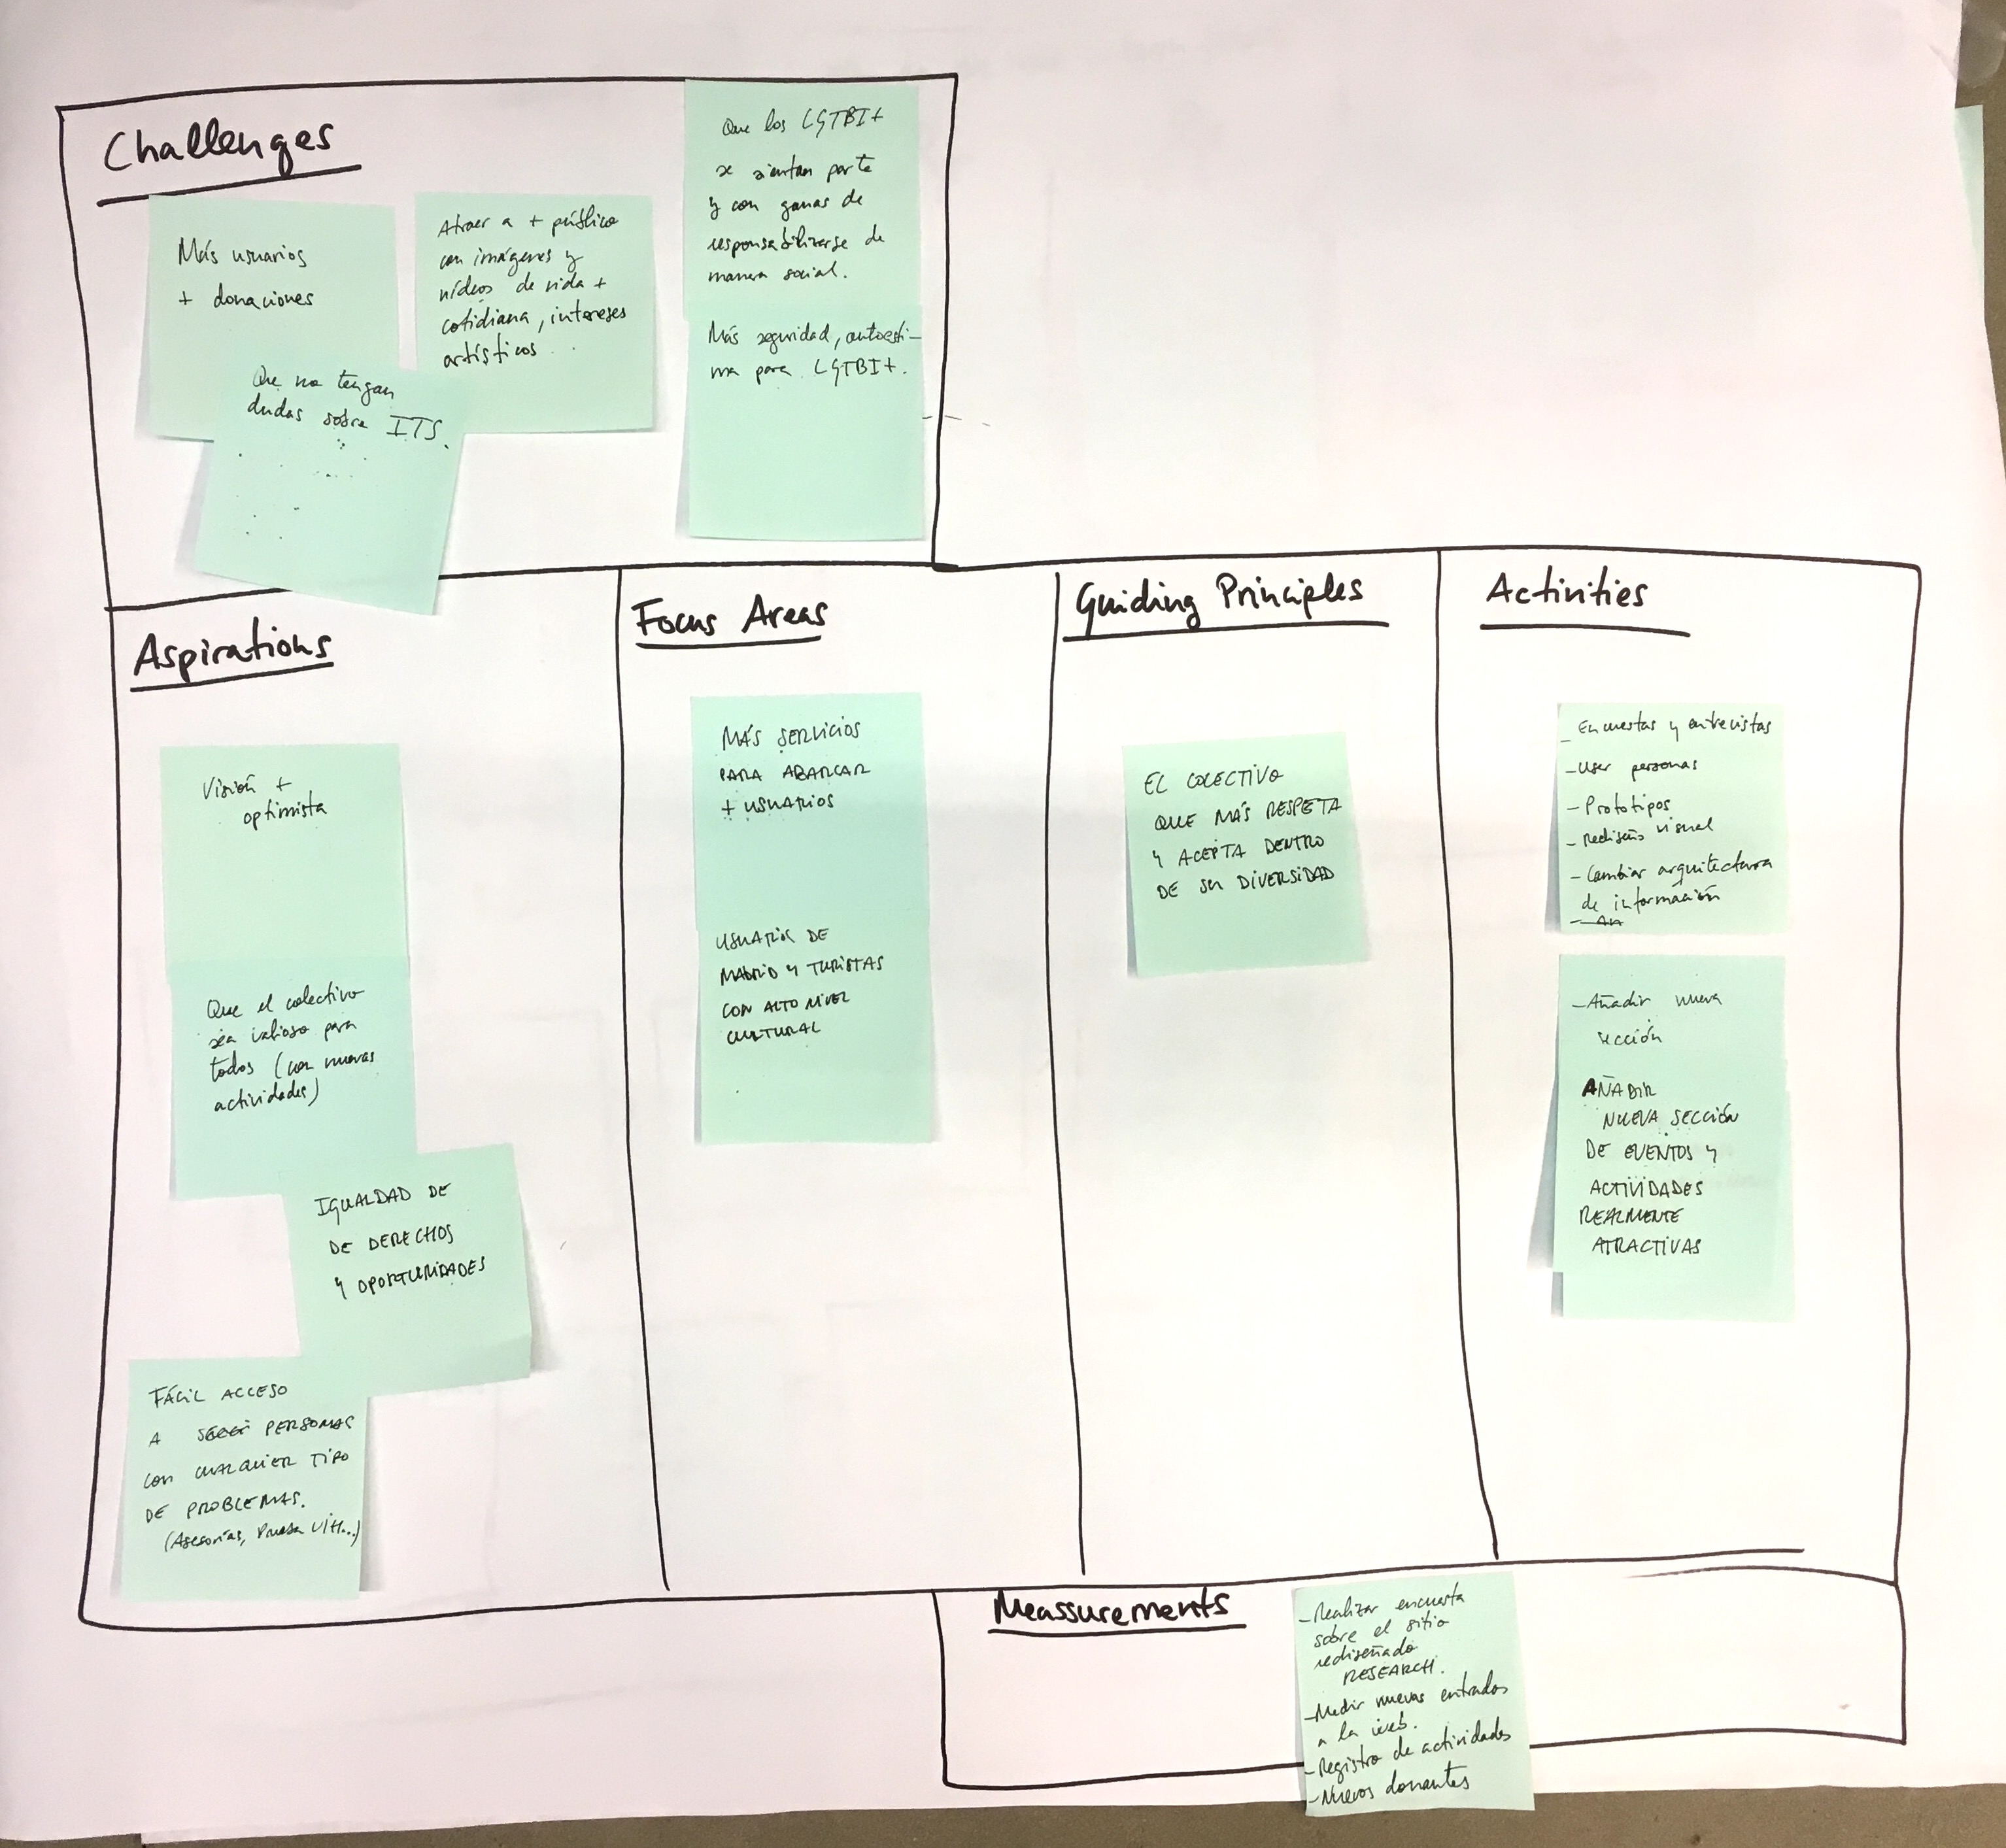 Challenges
Más usuarios
+ donaciones
Que no tengan
dudas sobre ITS.
Atraer a + público
con imágenes y
vídeos de vida +
cotidiana, intereses
artísticos...
Que los LGTBI+
se sientan parte
y con ganas de
responsabilizarse de
manera social.
Más seguridad, autoesti-
ma para LGTBI+.
Aspirations
Visión +
optimista
Que el colectivo
sea valioso para
todos (con nuevas
actividades)
IGUALDAD DE
DE DERECHOS
Y OPORTUNIDADES
FÁCIL ACCESO
A PERSONAS
CON CUALQUIER TIPO
DE PROBLEMAS.
(Asesorías, Prueba VIH...)
Focus Areas
MÁS SERVICIOS
PARA ABARCAR
+ USUARIOS
USUARIOS DE
MADRID Y TURISTAS
CON ALTO NIVEL
CULTURAL
Guiding Principles
EL COLECTIVO
QUE MÁS RESPETA
Y ACEPTA DENTRO
DE SU DIVERSIDAD
Activities
- Encuestas y entrevistas
- User personas
- Prototipos
- Rediseño visual
- Cambiar arquitectura
de información
- Añadir nueva
sección
AÑADIR
NUEVA SECCIÓN
DE EVENTOS Y
ACTIVIDADES
REALMENTE
ATRACTIVAS
Meassurements
- Realizar encuesta
sobre el sitio
rediseñado
RESEARCH.
- Medir nuevas entradas
a la web.
- Registro de actividades
- Nuevos donantes